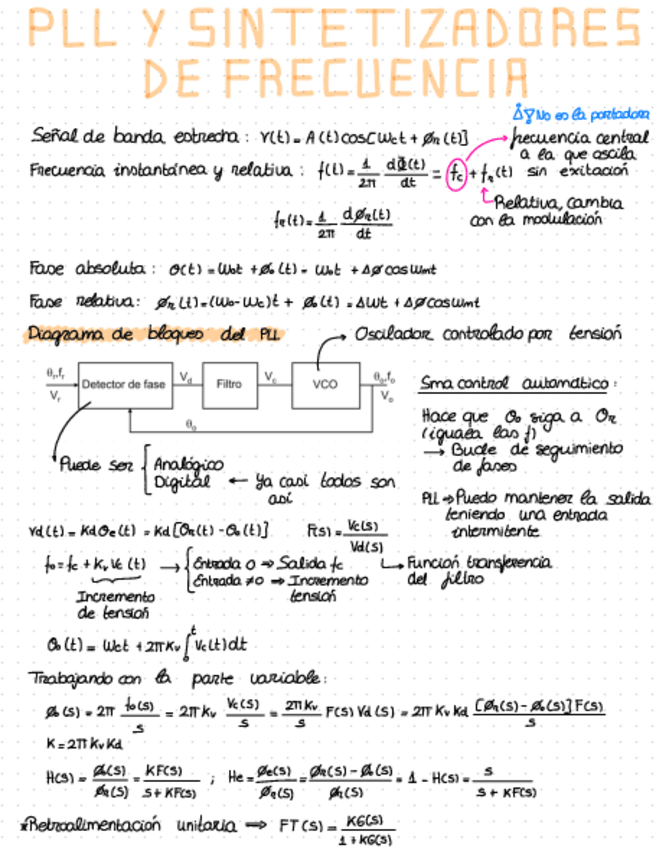 PLL Y SINTETIZADORES
DE FRECUENCIA
No es la portadora
Señal de banda estrecha : r(t) = A(t) cos[ωct + Ør(t)]
frecuencia central
a la que oscila
sin exitación
Frecuencia instantánea y relativa : f(t) = 1/2π dΦ(t)/dt = fc + fr(t)
Relativa, cambia
con la modulación
fr(t) = 1/2π dØr(t)/dt
Fase absoluta : θ(t) = ω0t + Øo(t) = ω0t + ΔØ cos ωmt
Fase relativa: Ør(t) = (ω0 - ωc)t + Øo(t) = Δωt + ΔØ cos ωmt
Diagrama de bloques del PLL
Oscilador controlado por tensión
θr,fr
Vr
Detector de fase
Vd
Filtro
Vc
VCO
θo,fo
Vo
θo
Sma control automático :
Hace que θo siga a θr
(iguala las f)
→ Bucle de seguimiento
de fases
Puede ser { Analógico
Digital ← Ya casi todos son
así
PLL ⇒ Puedo mantener la salida
teniendo una entrada
intermitente
Vd(t) = Kd θe(t) = Kd [θr(t) - θo(t)]
F(s) = Vc(s)/Vd(s)
fo = fc + Kv Vc (t) → { Entrada 0 ⇒ Salida fc
Entrada ≠0 ⇒ Incremento
tensión
Función transferencia
del filtro
Incremento
de tensión
θo(t) = ωct + 2π Kv ∫0t Vc(t) dt
Trabajando con la parte variable:
Øo(s) = 2π fo(s)/s = 2π Kv Vc(s)/s = 2π Kv/s F(s) Vd(s) = 2π Kv Kd [Ør(s) - Øo(s)] F(s)/s
K = 2π Kv Kd
H(s) = Øo(s)/Ør(s) = KF(s)/s + KF(s) ; He = Øe(s)/Ør(s) = Ør(s) - Øo(s)/Ør(s) = 1 - H(s) = s/s + KF(s)
*Retroalimentación unitaria ⇒ FT(s) = KG(s)/1 + KG(s)